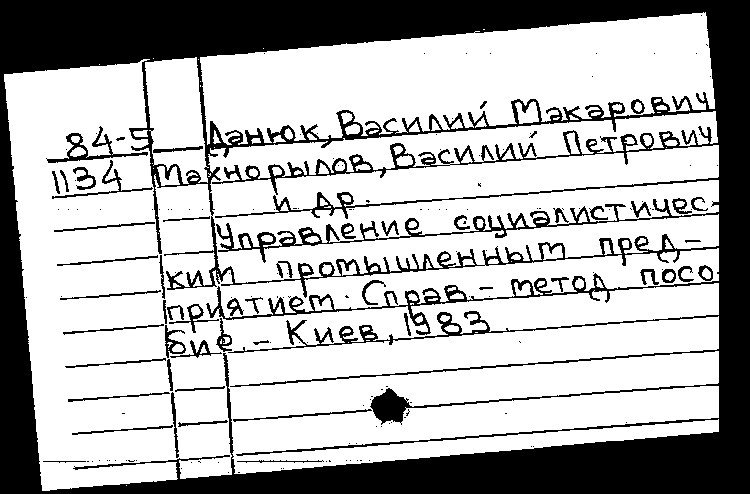 84-5 Данюк, Василий Макарович
1134 Махнорылов, Василий Петрович
и др.
Управление социалистичес-
ким промышленным пред-
приятием. Справ.- метод. посо-
бие. - Киев, 1983.